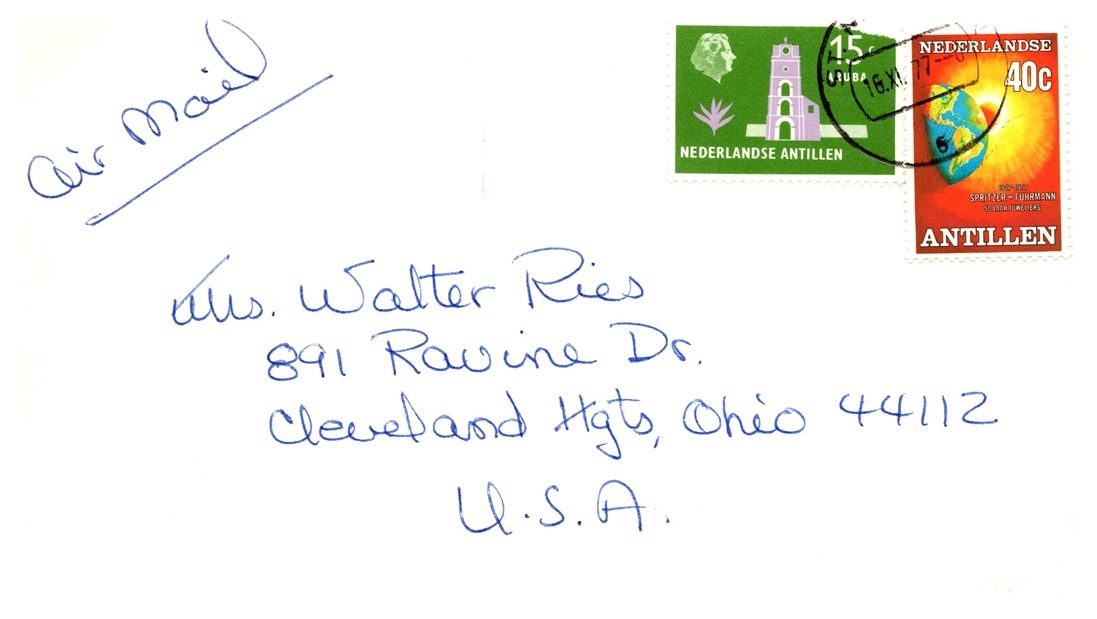 Air Mail
15 c
ARUBA
NEDERLANDSE ANTILLEN
16.XI.77
6
NEDERLANDSE
40c
1927-1977
SPRITZER + FUHRMANN
50 JAAR JUWELIERS
ANTILLEN
Mrs. Walter Ries
891 Ravine Dr.
Cleveland Hgts, Ohio 44112
U.S.A.